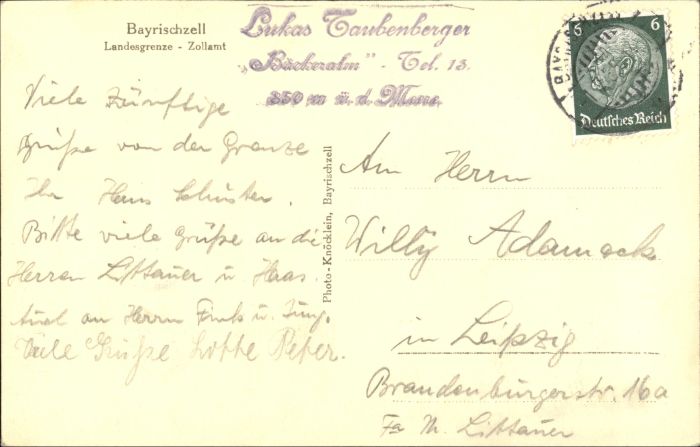 Bayrischzell
Landesgrenze - Zollamt
Lukas Taubenberger
„Bäckeralm" - Tel. 13.
850 m ü. d. Meere.
6 6
Deutsches Reich
Viele zünftige
Grüße von der Grenze
Ihr Hans Schuster.
Bitte viele Grüße an die
Herren Littauer u. Haas.
Auch an Herrn Fink u. Jung.
Viele Grüße Lotte Peter.
Photo-Knöcklein, Bayrischzell
An Herrn
Willy Adameck
in Leipzig
Brandenburgerstr. 16a
Fa M. Littauer